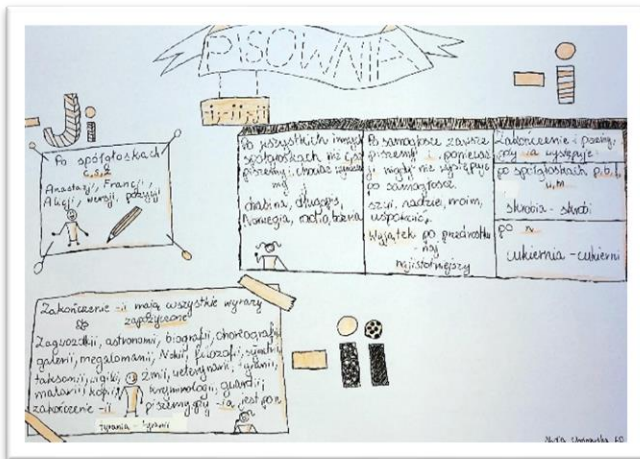 PISOWNIA
i, ii, ji
-Ji
Po spółgłoskach
c, s, z
Anastazji, Francji,
Akcji, wersji, pozycji
Po wszystkich innych
spółgłoskach niż c, s, z
piszemy i, chociaż
my
długopis,
Norwegia, radio,
Po samogłosce zawsze
piszemy i, ponieważ
ji nigdy nie występuje
po samogłosce.
szyi, nadziei, moim,
uspokoić,
Wyjątek po przedrostku
naj
najistotniejszy
-i
Zakończenie -i piszemy,
gdy ia występuje
po spółgłoskach p, b, f,
w, m
skrobia - skrobi
po n
cukiernia - cukierni
Zakończenie -ii mają wszystkie wyrazy
zapożyczone
astronomii, biografii, choreografii
galerii, megalomanii, filozofii,
wigilii, żmii, weterynarii, tyranii,
malarii, kopii, kryminologii,
zakończenie -ii piszemy gdy -ia jest po r
tyrania - tyranii
-ii